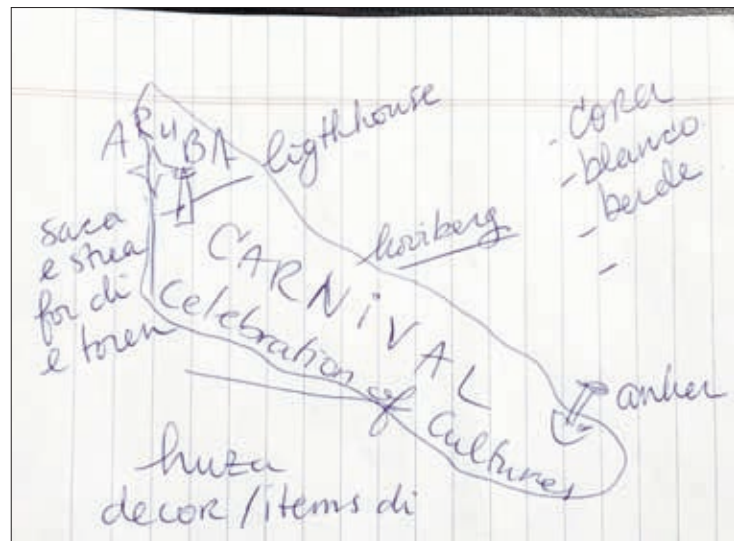 ARUBA
ligthhouse
- CORA
- blanco
- berde
-
-
saca
e strea
for di
e toren
CARNiVAL
hooiberg
Celebration of Cultures
anker
huza
decor/items di